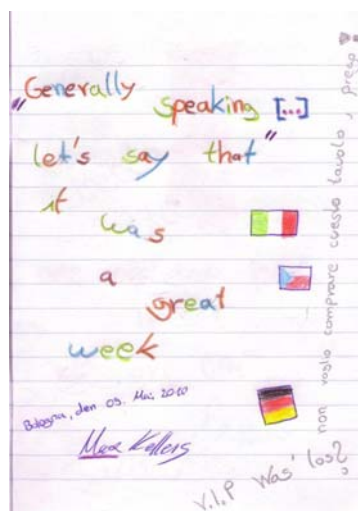 "Generally
speaking [...]
let's say that"
it
was
a
great
week
Bologna, den 09. Mai 2010
Max Kellers
V.I.P Was' los?
non voglio comprare cuesto tavolo, presp!